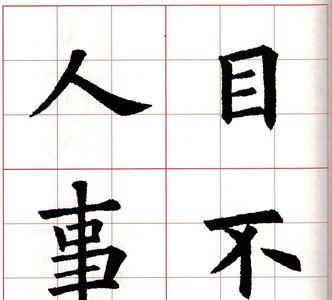 目不
人事